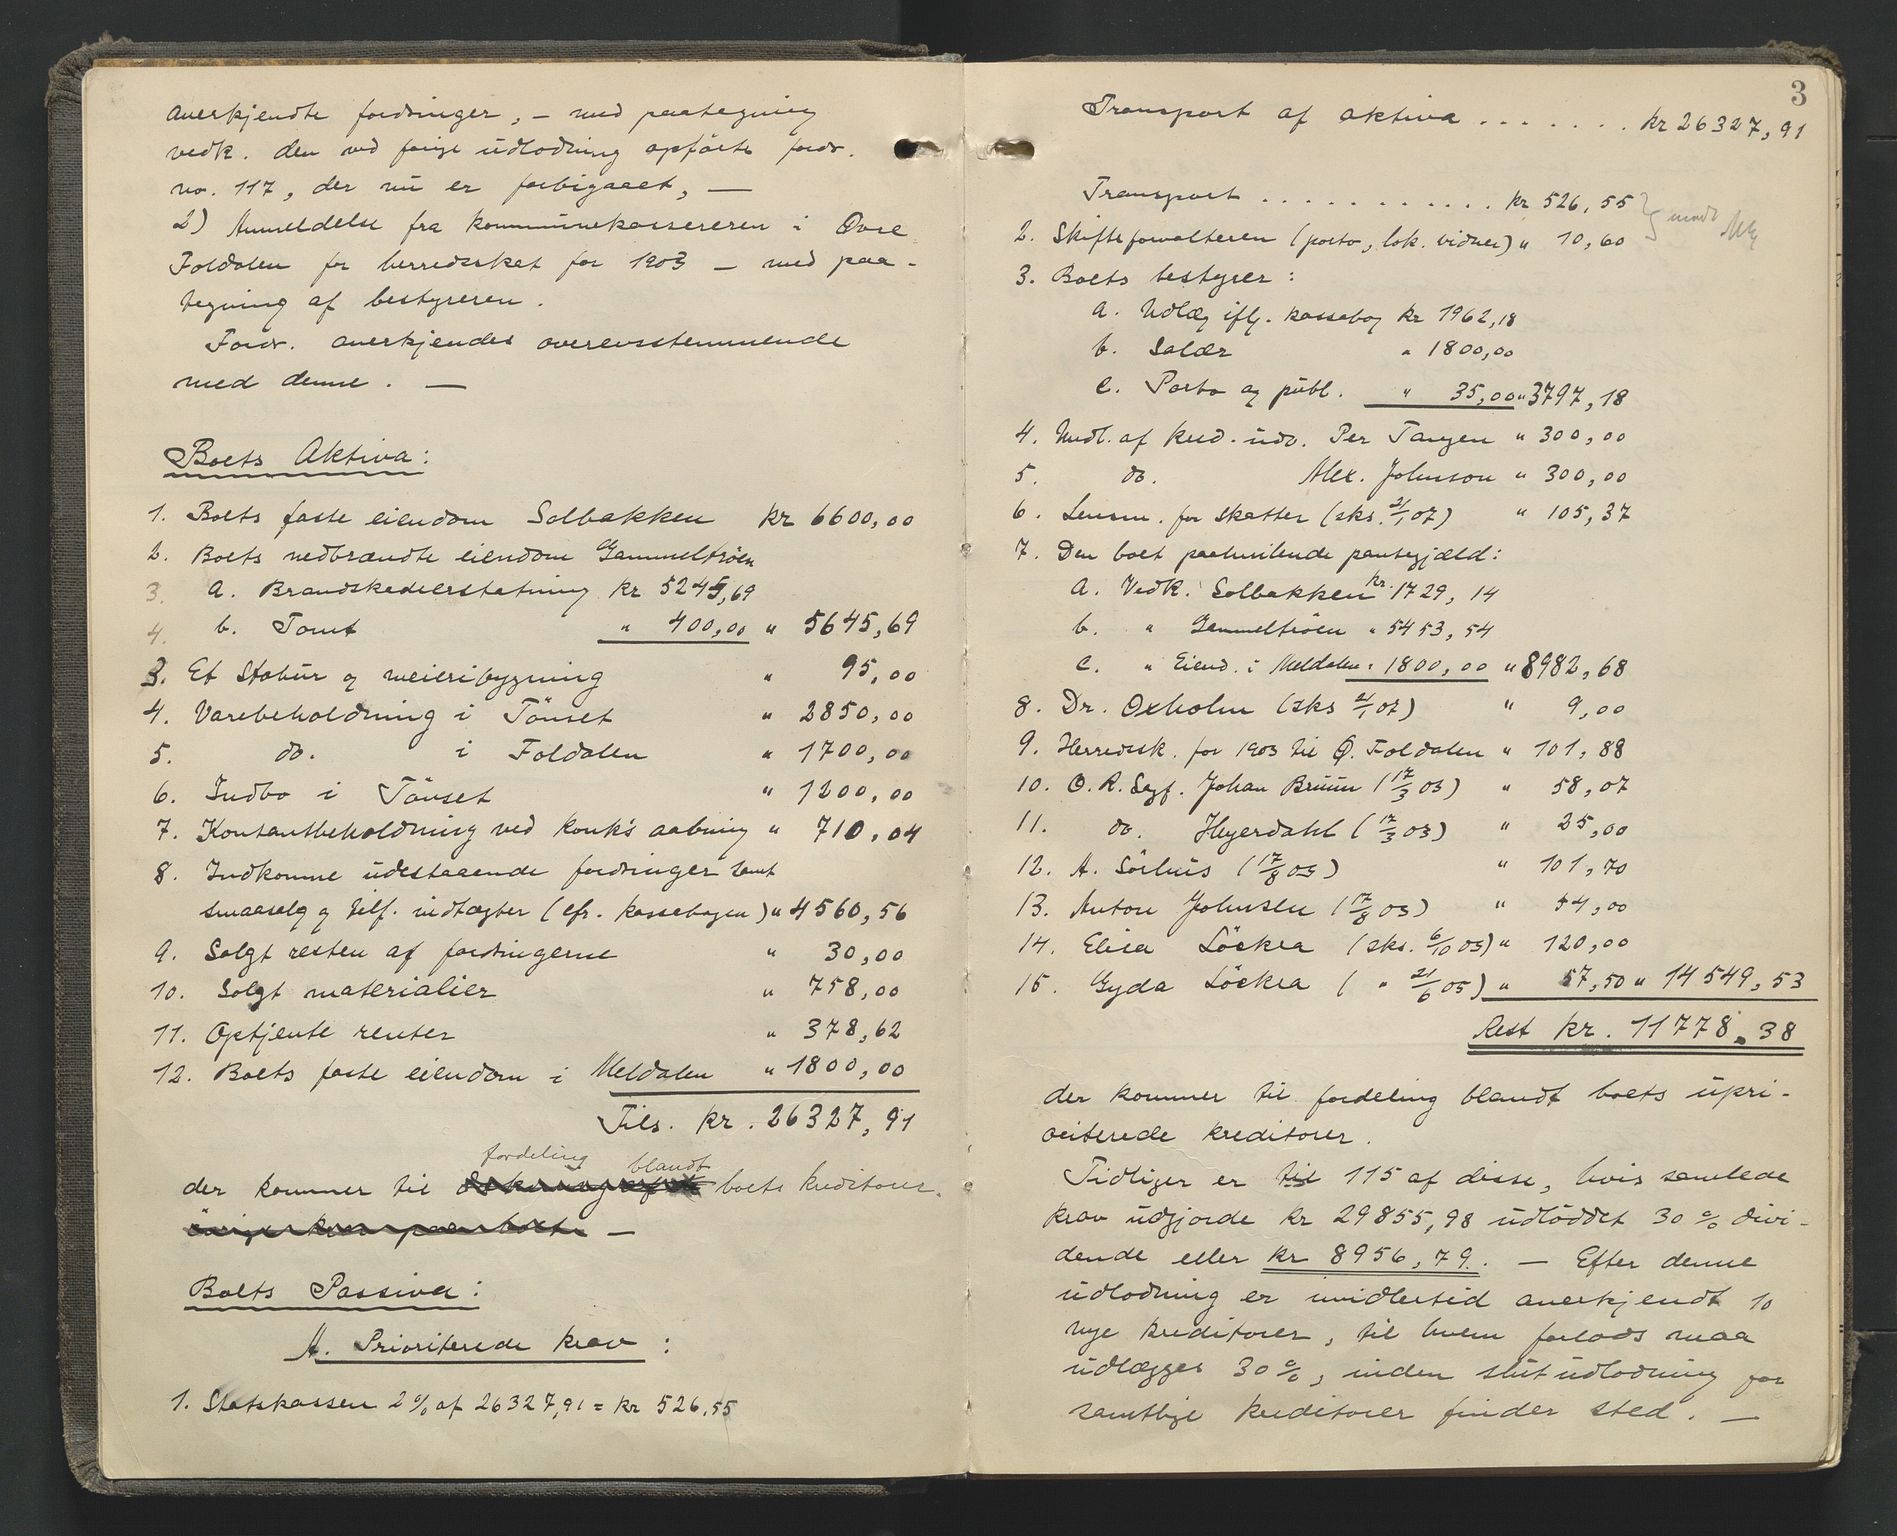 anerkjendte fordringer, – med paategning
vedk. den ved forige udlodning opførte fordr.
no. 117, der nu er forbigaaet, —
2) Anmeldelse fra kommunekassereren i Øvre
Foldalen for herredsskat for 1903 – med paa-
tegning af bestyreren.
Fordr. anerkjendes overensstemmende
med denne. —
Boets Aktiva:
1. Boets faste eiendom Solbakken kr 6600,00
2. Boets nedbrændte eiendom Gammeltrøen
3. a. Brandskadeerstatning kr 5245,69
4. b. Tomt " 400,00 " 5645,69
3. Et Stabur og meieribygning " 95,00
4. Varebeholdning i Tönset " 2850,00
5. do. i Foldalen " 1700,00
6. Indbo i Tönset " 1200,00
7. Kontantbeholdning ved konk's aabning " 710,04
8. Indkomne udestaaende fordringer samt
smaasalg og tilf. indtægter (cfr. kassebogen) " 4560,56
9. Solgt resten af fordringerne " 30,00
10. Solgt materialier " 758,00
11. Optjente renter " 378,62
12. Boets faste eiendom i Meldalen " 1800,00
Tils. kr. 26327,91
fordeling blandt
der kommer til boets kreditorer.
—
Boets Passiva:
A. Prioriterede krav:
1. Statskassen 2 % af 26327,91 = kr 526,55
3
Transport af aktiva . . . . . . . kr 26327,91
Transport . . . . . . . . . . . . kr 526,55
2. Skifteforvalteren (porto, lok. vidner) " 10,60
3. Boets bestyrer:
a. Udlæg iflg. kassebog kr 1962,18
b. Salær " 1800,00
c. Porto og publ. " 35,00 " 3797,18
4. Medl. af kred. udv. Per Tangen " 300,00
5. do. Alex. Johnson " 300,00
6. Lensm. for skatter (sks. 21/1 07) " 105,37
7. Den boet paahvilende pantegjæld:
a. Vedk. Solbakken kr. 1729,14
b. " Gammeltrøen " 5453,54
c. " Eiend. i Meldalen " 1800,00 " 8982,68
8. Dr. Oxholm (sks 21/1 07) " 9,00
9. Herredssk. for 1903 til Ø. Foldalen " 101,88
10. O. R. Sagf. Johan Bruun (17/3 03) " 58,07
11. do. Heyerdahl (17/3 03) " 25,00
12. A. Sörhus (17/8 03) " 101,70
13. Anton Johnsen (17/8 03) " 54,00
14. Elisa Löckra (sks. 6/10 03) " 120,00
15. Gyda Löckra ( " 21/6 05) " 57,50 " 14549,53
Rest kr. 11778.38
der kommer til fordeling blandt boets upri-
oriterede kreditorer.
Tidliger er til 115 af disse, hvis samlede
krav udgjorde kr 29855,98 udloddet 30 % divi-
dende eller kr 8956,79. — Efter denne
udlodning er imidlertid anerkjendt 10
nye kreditorer, til hvem forlods maa
udlægges 30 %, inden slutudlodning for
samtlige kreditorer finder sted. —